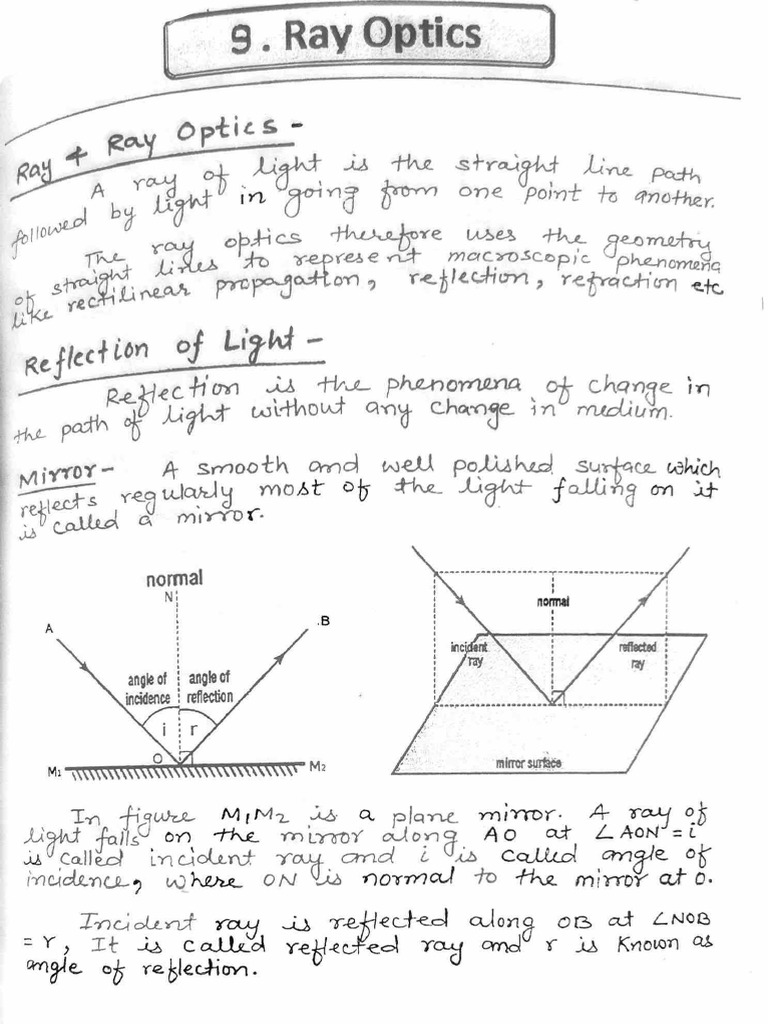 9. Ray Optics
Ray & Ray Optics -
A ray of light is the straight line path
followed by light in going from one point to another.
The ray optics therefore uses the geometry
of straight lines to represent macroscopic phenomena
like rectilinear propagation, reflection, refraction etc
Reflection of Light -
Reflection is the phenomena of change in
the path of light without any change in medium.
Mirror - A smooth and well polished surface which
reflects regularly most of the light falling on it
is called a mirror.
normal
N
A
B
angle of incidence
angle of reflection
i
r
O
M1
M2
normal
incident ray
reflected ray
mirror surface
In figure M1M2 is a plane mirror. A ray of
light falls on the mirror along AO at ∠AON = i
is called incident ray and i is called angle of
incidence, where ON is normal to the mirror at O.
Incident ray is reflected along OB at ∠NOB
= r, It is called reflected ray and r is Known as
angle of reflection.